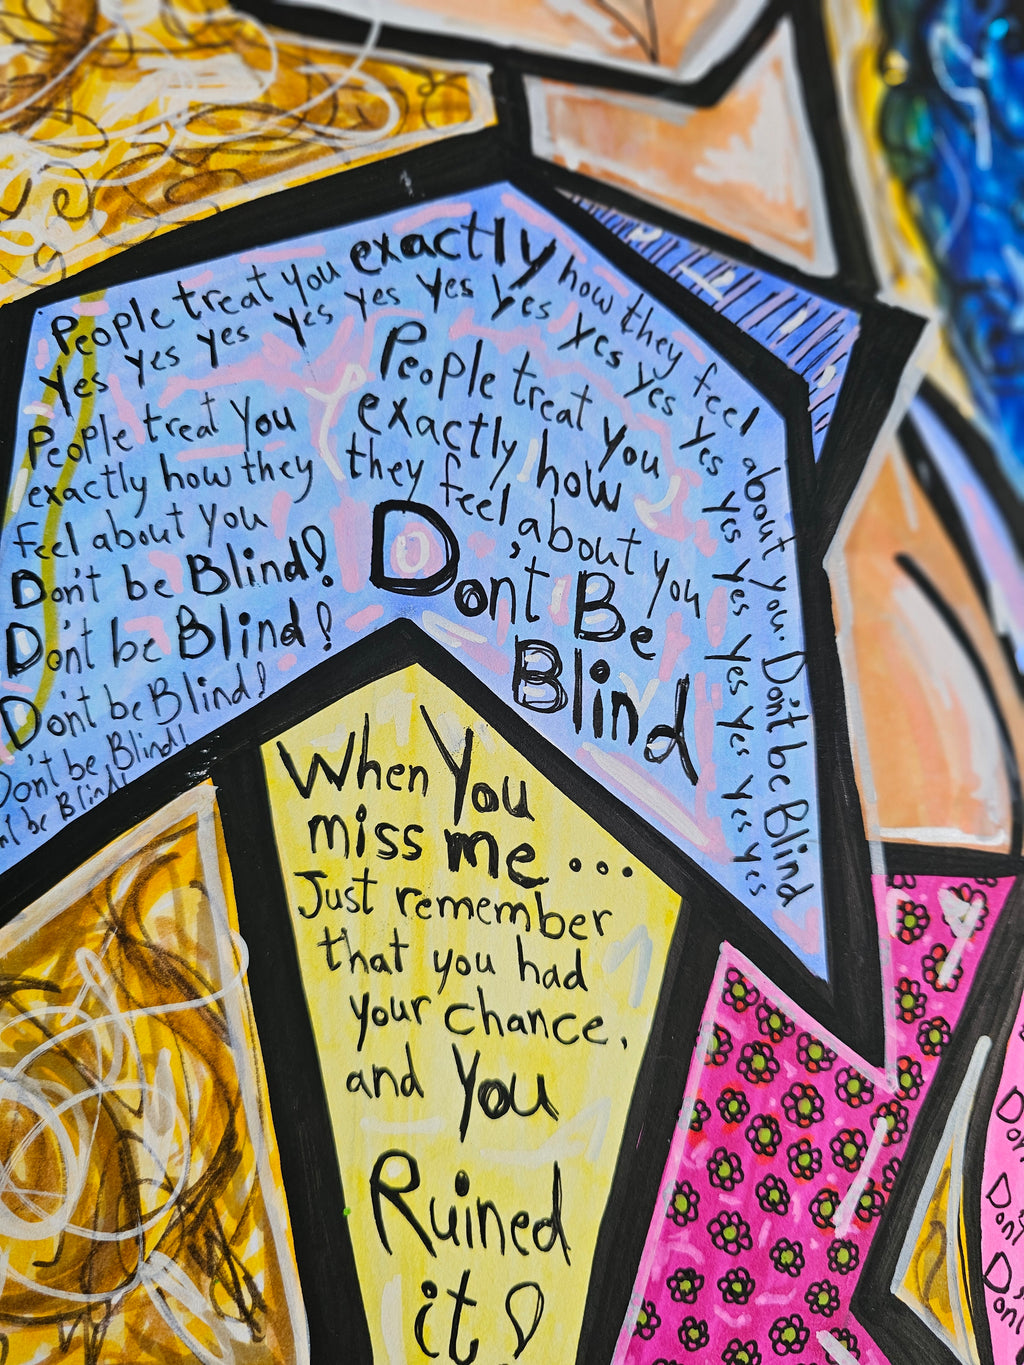 People treat you exactly how they feel about you. Don't be Blind
Yes yes yes yes yes yes yes yes yes yes yes yes yes yes yes yes yes yes
People treat you
exactly how they
feel about you
Don't be Blind!
Don't be Blind!
Don't be Blind!
Don't be Blind!
be Blind!
People treat you
exactly how
they feel about you
Don't Be
Blind
When You
miss me...
Just remember
that you had
your chance,
and You
Ruined
it!
Don't
Dont
Dont